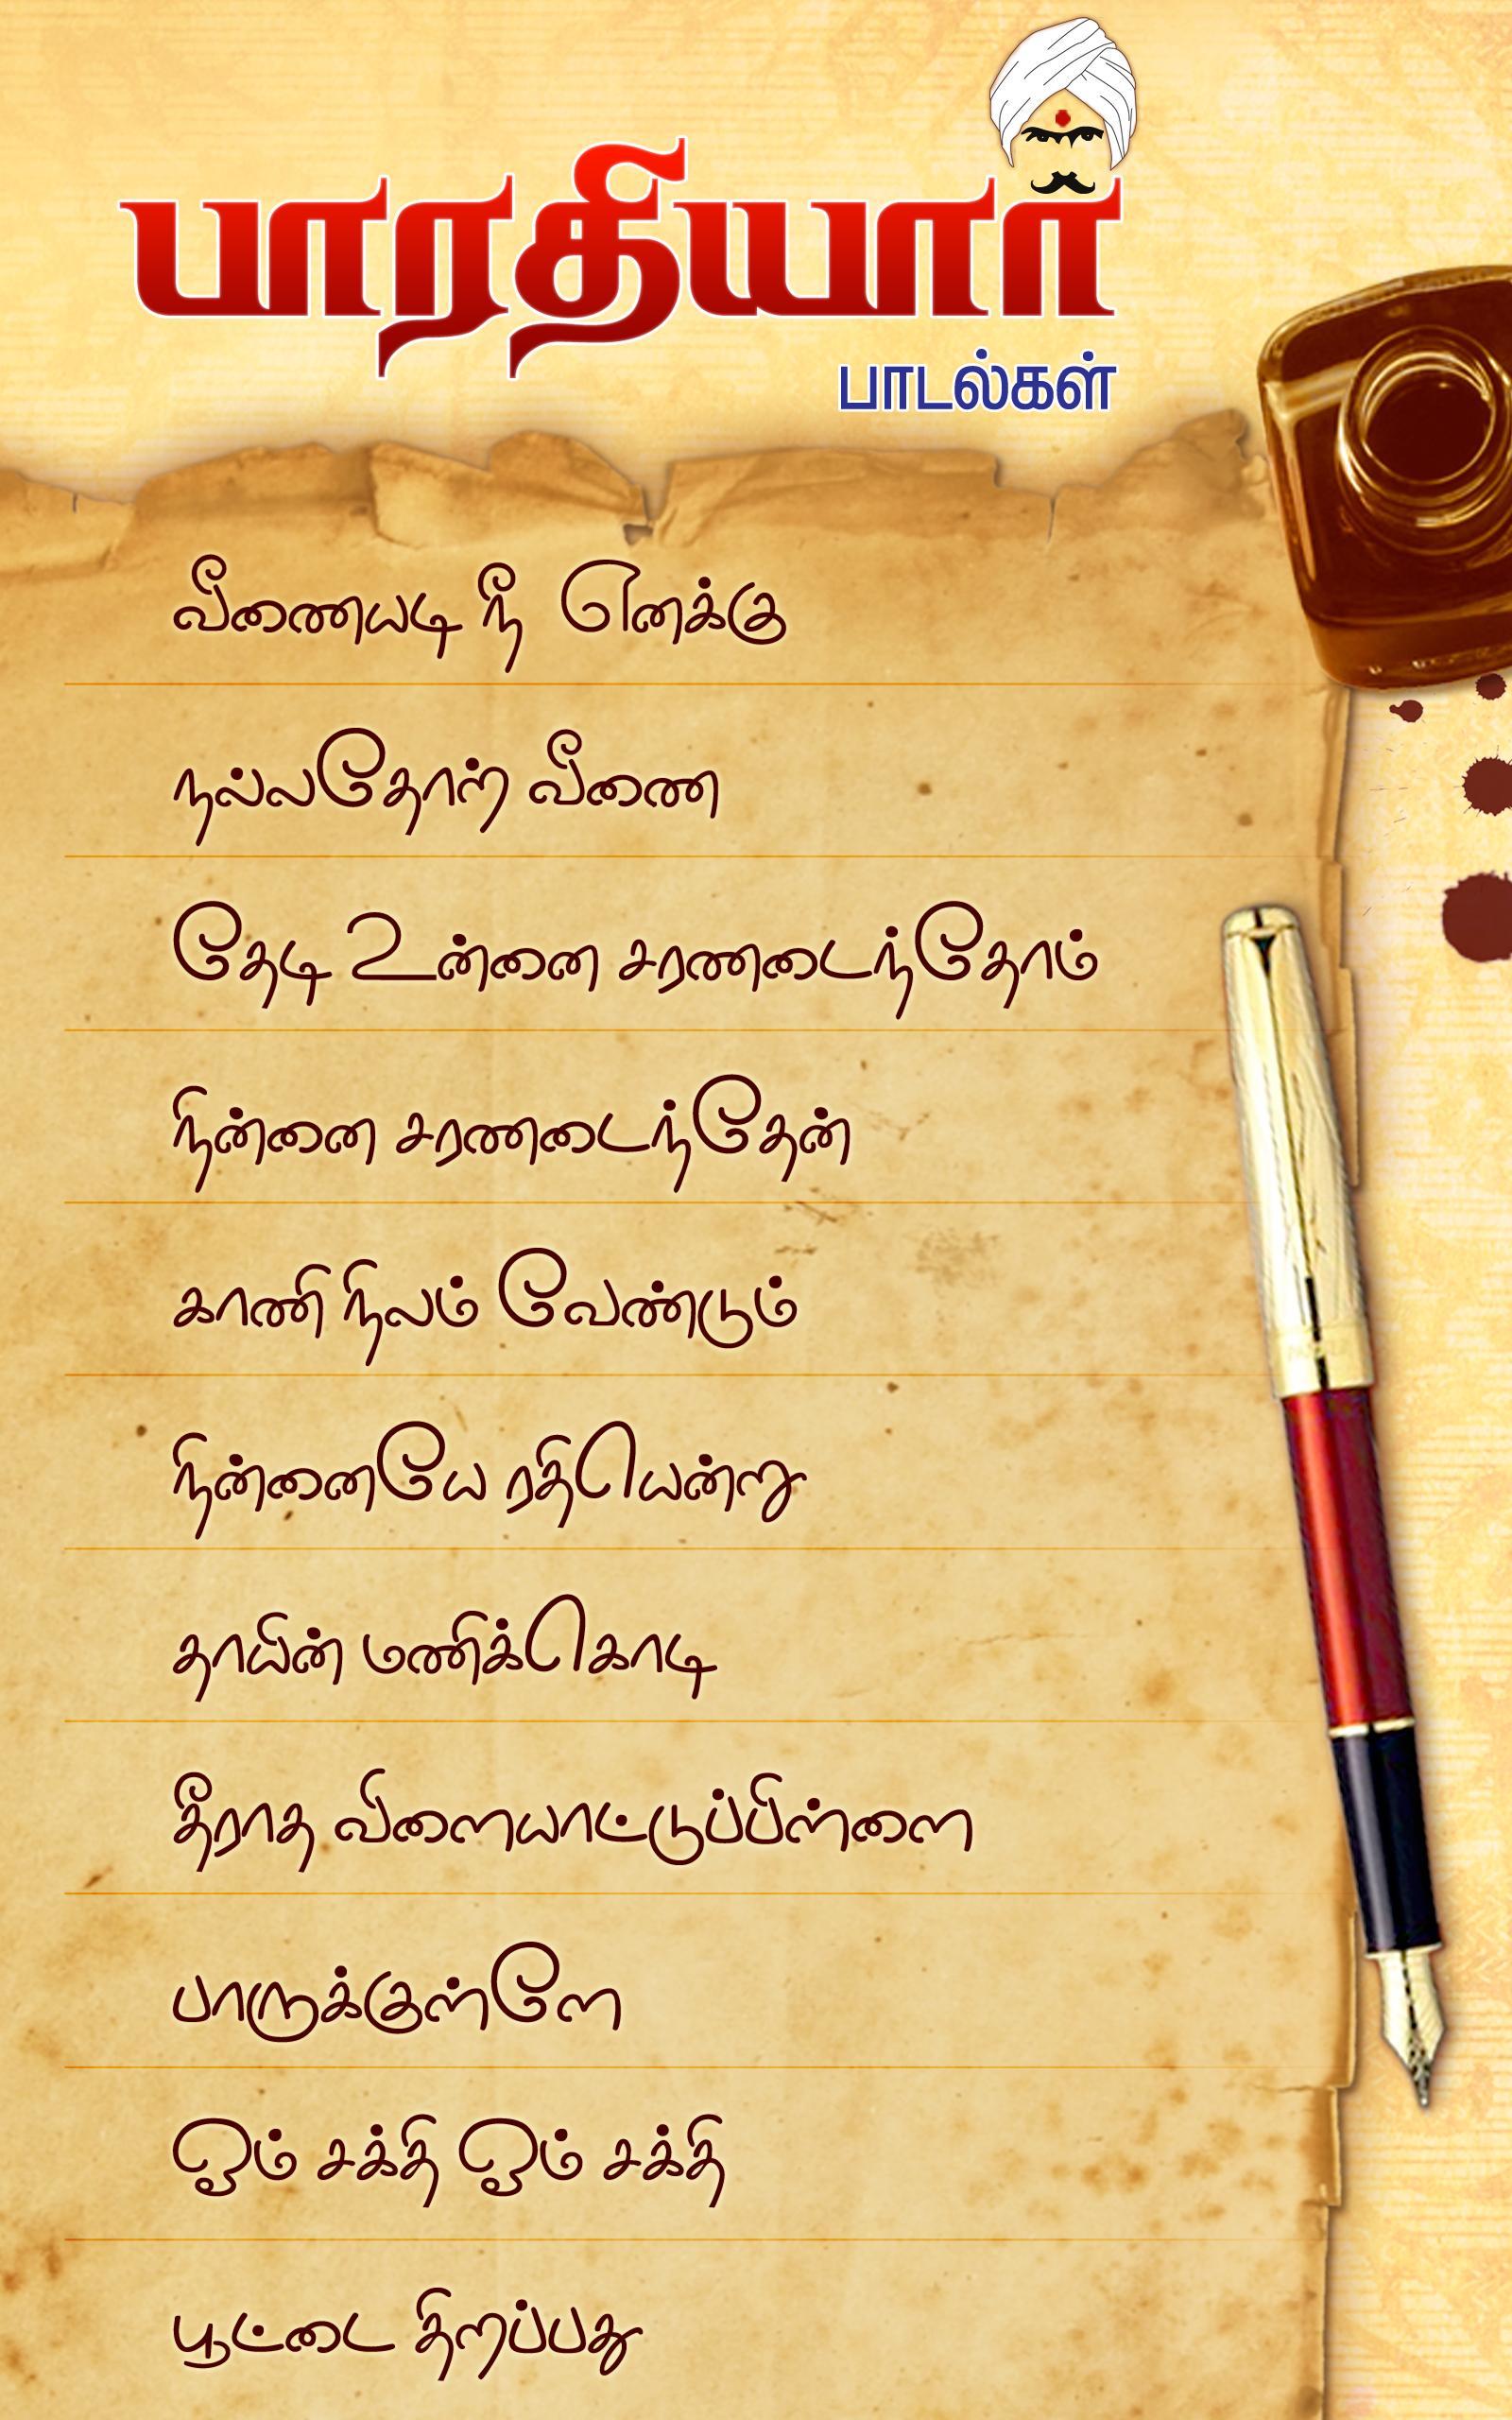 பாரதியார்
பாடல்கள்
வீணையடி நீ எனக்கு
நல்லதோர் வீணை
தேடி உன்னை சரணடைந்தோம்
நின்னை சரணடைந்தேன்
காணி நிலம் வேண்டும்
நின்னையே ரதியென்று
தாயின் மணிக்கொடி
தீராத விளையாட்டுப்பிள்ளை
பாருக்குள்ளே
ஓம் சக்தி ஓம் சக்தி
பூட்டை திறப்பது